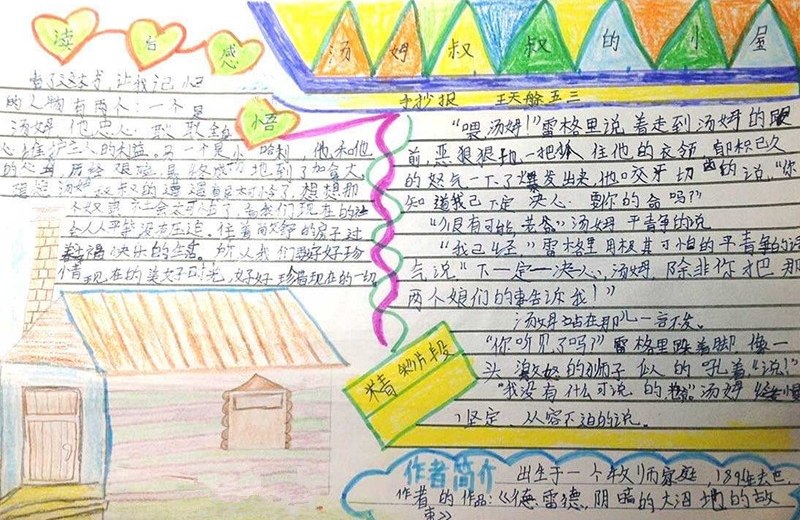 读后感
汤姆叔叔的小屋
手抄报 五三
看了这本书,让我记
的人物有两个:一个是
汤姆,他忠心
心维护主人的利益,另一个是小哈利,他和他
地到了加拿大,
想想那
我们现在的社
会人人平等没有压迫,住着的房子过
幸福快乐的生活。所以我们要好好珍
惜现在的美好时光,好好珍惜现在的一切
悟
“喂,汤姆!”雷格里说着走到汤姆的跟
前,恶狠狠地一把住他的衣领,郁积已久
的怒气一下子爆发出来,他咬牙切齿的说,“你
知道我已下定决心要你的命吗?”
“很有可能,老爷”汤姆平静的说
“我已经”雷格里用极其可怕的平静的语
气说“下—定—决心,汤姆,除非你才把那
两个娘们的事告诉我!”
汤姆站在那儿一言不发。
“你听见了吗?”雷格里跺着脚像一
头激怒的狮子似的吼着“说!”
“我没有什么可说的”汤姆
坚定、从容不迫的说。
精彩片段
作者简介 出生于一个牧师家庭,1894年去世,
作者的作品:《德雷德,阴暗的大沼地的故
事》